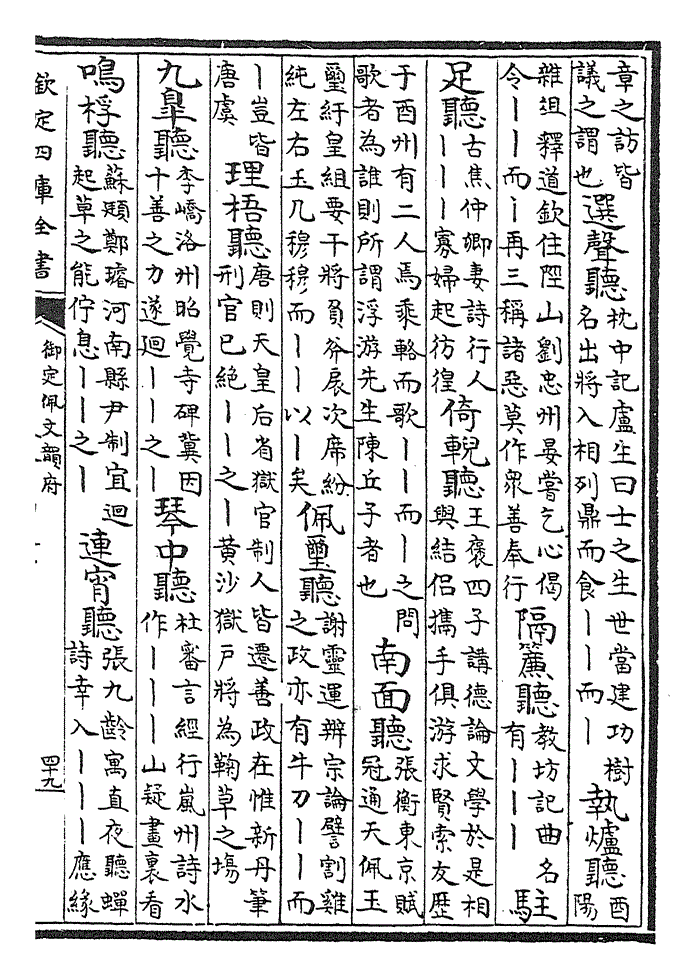 章之訪皆
議之謂也
選聲聽
枕中記盧生曰士之生世當建功樹
名出將入相列鼎而食丨丨而丨
執爐聽
酉
陽
雜爼釋道欽住陘山劉忠州晏嘗乞心偈
令丨丨而丨再三稱諸惡莫作衆善奉行
隔簾聽
教坊記曲名
有丨丨丨
駐
足聽
古焦仲卿妻詩行人
丨丨丨寡婦起彷徨
倚輗聽
王褒四子講德論文學於是相
與結侶攜手俱游求賢索友歷
于西州有二人焉乘輅而歌丨丨而丨之問
歌者為誰則所謂浮游先生陳丘子者也
南面聽
張衡東京賦
冠通天佩玉
璽紆皇組要干將負斧扆次席紛
純左右玉几穆穆而丨丨以丨矣
佩璽聽
謝靈運辨宗論譬割雞
之政亦有牛刀丨丨而
丨豈皆
唐虞
理梧聽
唐則天皇后省獄官制人皆遷善政在惟新丹筆
刑官已絶丨丨之丨黃沙獄戸將為鞠草之塲
九皐聽
李嶠洛州昭覺寺碑冀因
十善之力遂迴丨丨之丨
琴中聽
杜審言經行嵐州詩水
作丨丨丨山疑畫裏看
鳴桴聽
蘇頲鄭璿河南縣尹制宜迴
起草之能佇息丨丨之丨
連宵聽
張九齡寓直夜聽蟬
詩幸入丨丨丨應緣
欽定四庫全書
御定佩文韻府
四十九